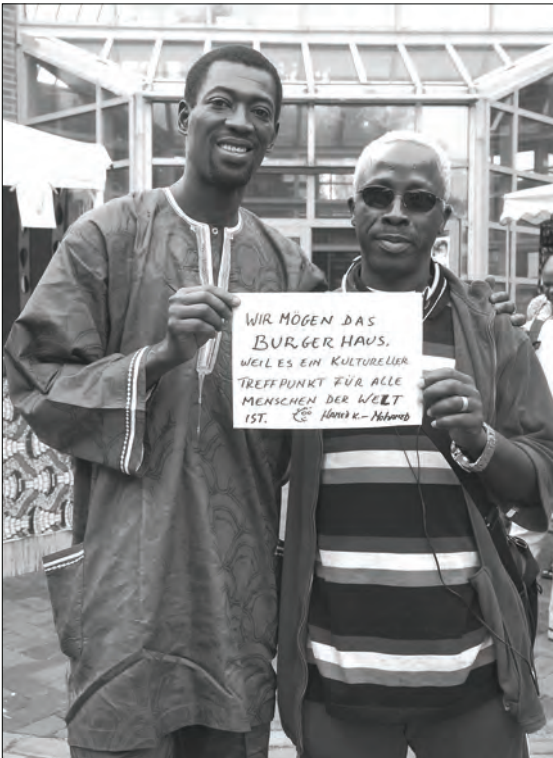 WIR MÖGEN DAS
BÜRGERHAUS,
WEIL ES EIN KULTURELLER
TREFFPUNKT FÜR ALLE
MENSCHEN DER WELT
IST. HAMED K. – MOHAMED